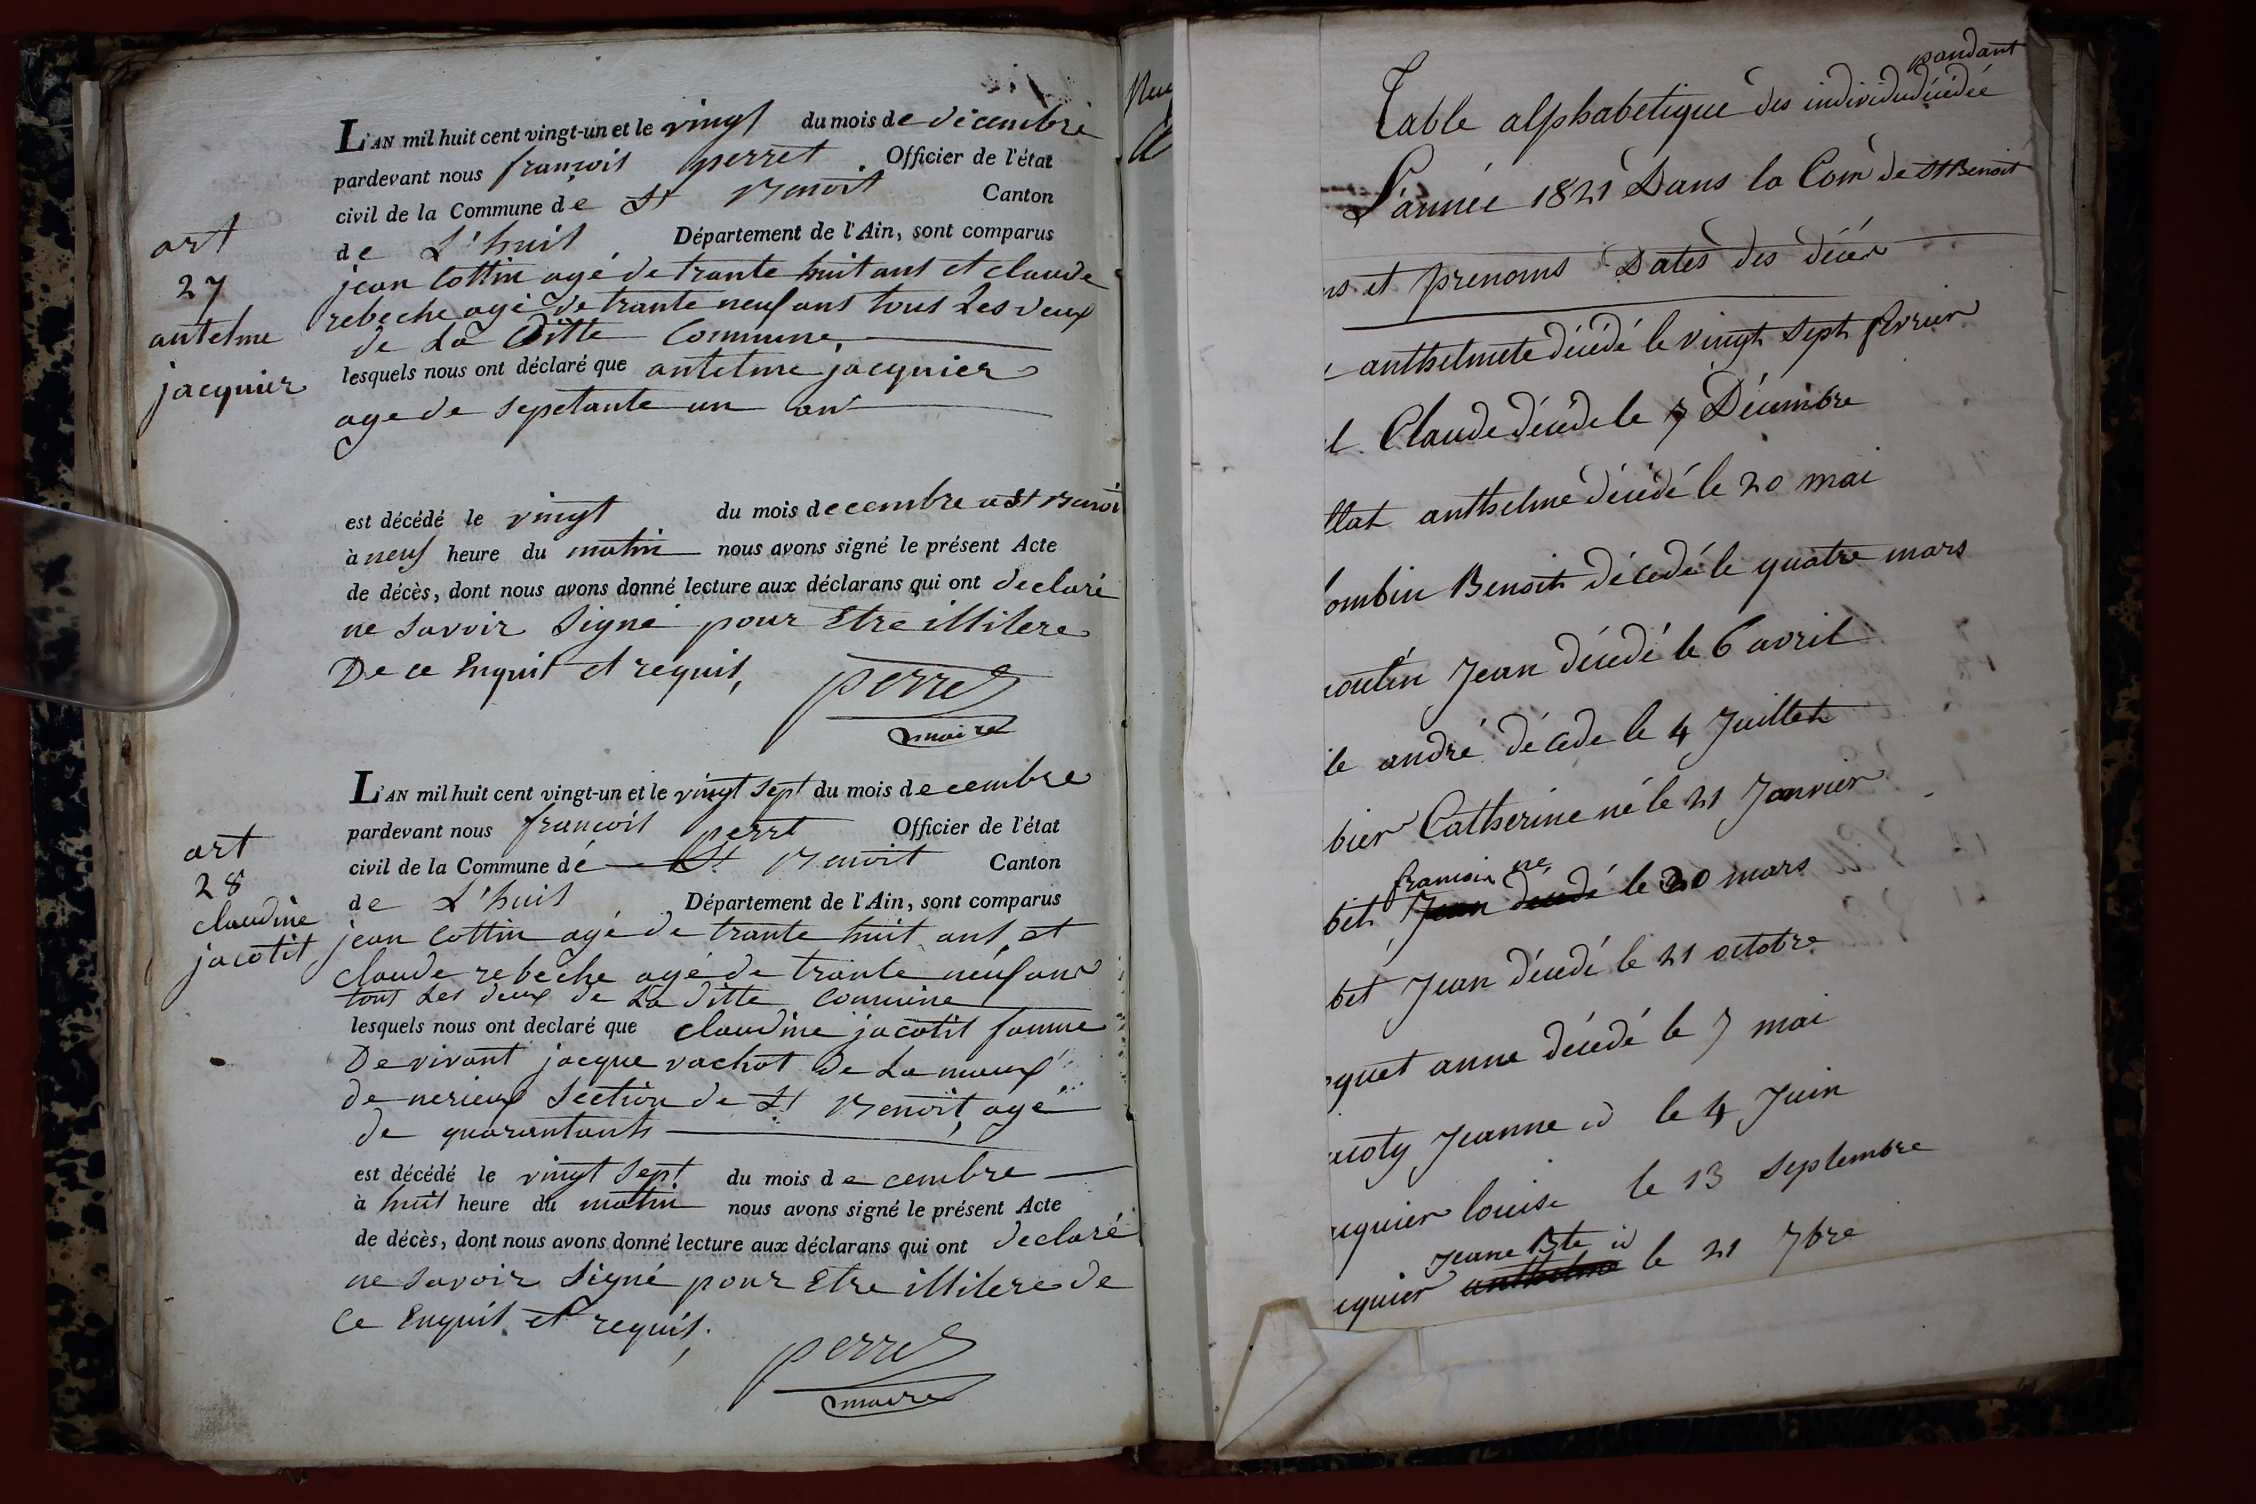 L'AN mil huit cent vingt-un et le vingt du mois de decembre
pardevant nous francois perret Officier de l'état
civil de la Commune de St Benoit Canton
de L'huis Département de l'Ain, sont comparus
jean Cottin agé de trante huit ans et claude
rebeche agé de trante neuf ans tous Les deux
de La Ditte Commune,
lesquels nous ont déclaré que antelme jacquier
age de sepetante un an
est décédé le vingt du mois decembre a St Benoi
à neuf heure du matin nous avons signé le présent Acte
de décès, dont nous avons donné lecture aux déclarans qui ont declaré
ne savoir Signé pour Etre illitere
De ce Enquis et requis,
perret
maire
art
27
antelme
jacquier
L'AN mil huit cent vingt-un et le vingt sept du mois decembre
pardevant nous francois perrt Officier de l'état
civil de la Commune dé St Benoit Canton
de L'huis Département de l'Ain, sont comparus
jean Cottin agé de trante huit ans, et
claude rebeche agé de trante neuf ans
tous Les deux de La ditte commune
lesquels nous ont declaré que claudine jacotit famme
De vivant jacque vachot De La
de nerieux Section de St Benoit, agé
de quarantants
est décédé le vingt sept du mois de cembre
à huit heure du matin nous avons signé le présent Acte
de décès, dont nous avons donné lecture aux déclarans qui ont declaré
ne savoir Signé pour Etre illitere de
Ce Enquis et requis,
perret
maire
art
28
claudine
jacotit
pandant
Table alphabetique des individu décédée
L'année 1821 Dans la Com de St Benoit
ns et prenoms Dates des décés
anthelmete décédé le vingt sept fevrier
l Claude décédé le 7 Décembre
llat anthelme décédé le 20 mai
lombin Benoit décédé le quatre mars
outin Jean décédé le 6 avril
le andré décede le 4 Juillet
bier Catherine né le 21 Janvier
francois né
bet Jean décédé le 20 mars
bet Jean décédé le 21 octobre
quet anne décédé le 7 mai
acoty Jeanne id le 4 Juin
acquier louise le 13 septembre
Jeane Bte id
cquier anthelme le 21 7bre